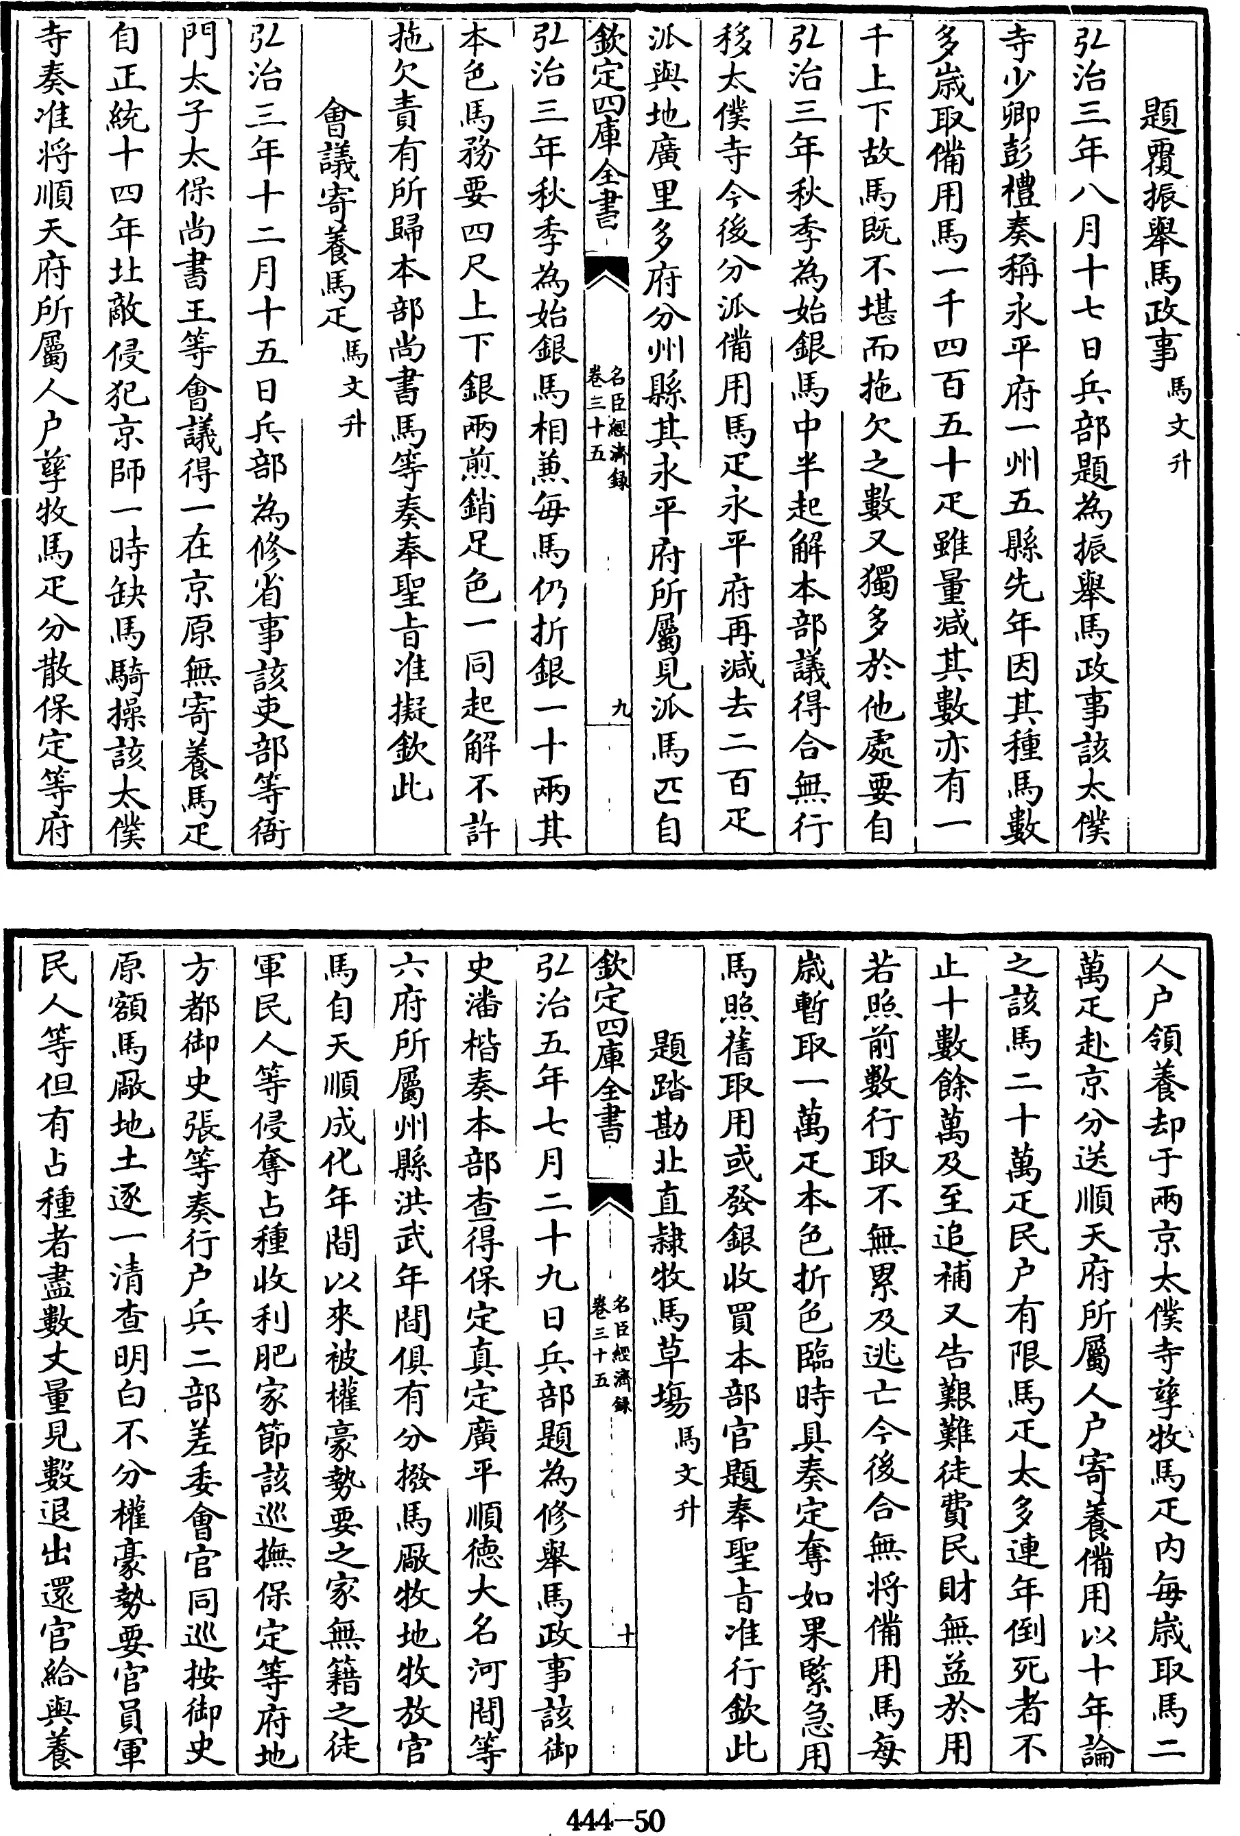 題覆振舉馬政事 馬文升
弘治三年八月十七日兵部題為振舉馬政事該太僕
寺少卿彭禮奏稱永平府一州五縣先年因其種馬數
多歲取備用馬一千四百五十疋雖量減其數亦有一
千上下故馬既不堪而拖欠之數又獨多於他處要自
弘治三年秋季為始銀馬中半起解本部議得合無行
移太僕寺今後分派備用馬疋永平府再減去二百疋
派與地廣里多府分州縣其永平府所屬見派馬匹自
欽定四庫全書 名臣經濟録 卷三十五 九
弘治三年秋季為始銀馬相兼每馬仍折銀一十兩其
本色馬務要四尺上下銀兩煎銷足色一同起解不許
拖欠責有所歸本部尚書馬等奏奉聖旨准擬欽此
會議寄養馬疋 馬文升
弘治三年十二月十五日兵部為修省事該吏部等衙
門太子太保尚書王等會議得一在京原無寄養馬疋
自正統十四年北敵侵犯京師一時缺馬騎操該太僕
寺奏准將順天府所屬人户孳牧馬疋分散保定等府
人户領養却于兩京太僕寺孳牧馬疋内每歲取馬二
萬疋赴京分送順天府所屬人户寄養備用以十年論
之該馬二十萬疋民户有限馬疋太多連年倒死者不
止十數餘萬及至追補又告艱難徒費民財無益於用
若照前數行取不無累及逃亡今後合無將備用馬每
歲暫取一萬疋本色折色臨時具奏定奪如果緊急用
馬照舊取用或發銀收買本部官題奉聖旨准行欽此
題踏勘北直隸牧馬草塲 馬文升
欽定四庫全書 名臣經濟録 卷三十五 十
弘治五年七月二十九日兵部題為修舉馬政事該御
史潘楷奏本部查得保定真定廣平順德大名河間等
六府所屬州縣洪武年間俱有分撥馬厰牧地牧放官
馬自天順成化年間以來被權豪勢要之家無籍之徒
軍民人等侵奪占種收利肥家節該巡撫保定等府地
方都御史張等奏行户兵二部差委會官同巡按御史
原額馬厰地土逐一清查明白不分權豪勢要官員軍
民人等但有占種者盡數丈量見數退出還官給與養
444-50